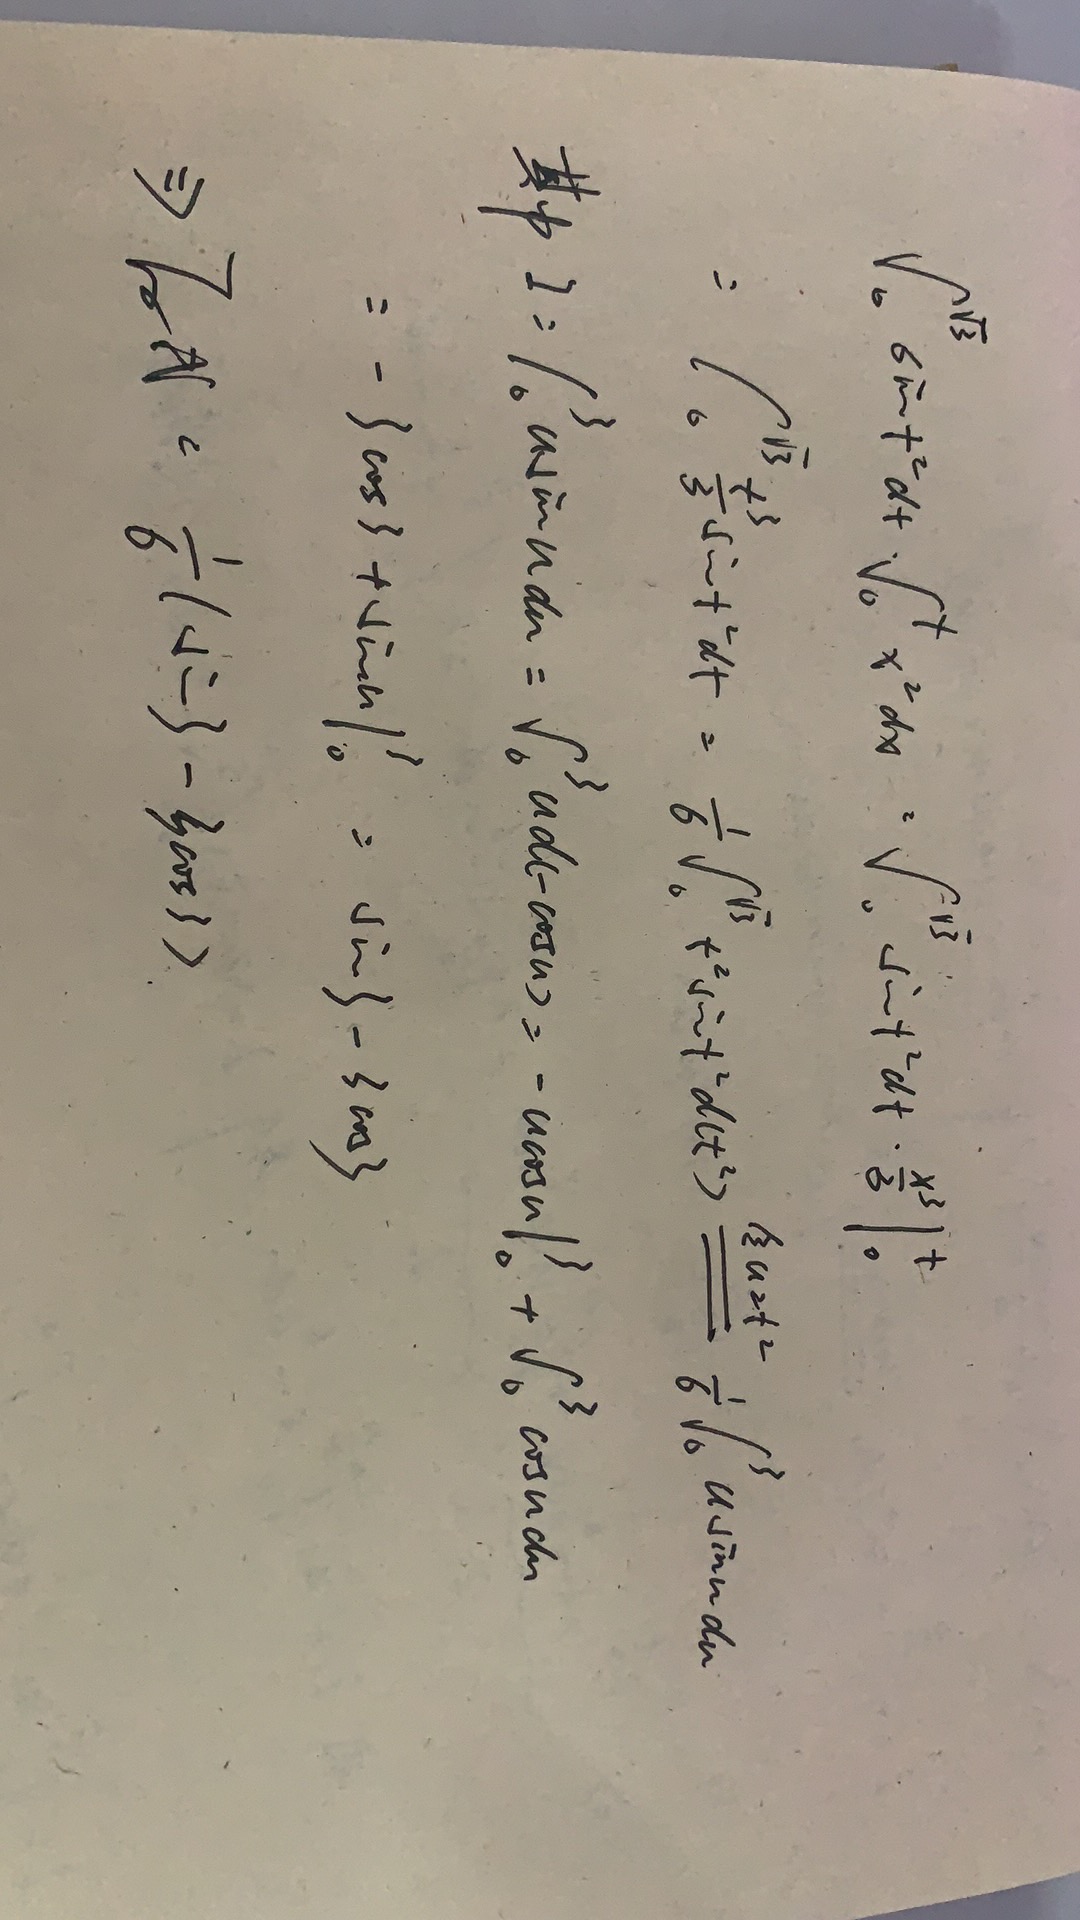 ∫₀^√3 sint²dt·∫₀^t x²dx = ∫₀^√3 sint²dt·x³/3|₀^t
= ∫₀^√3 t³/3 sint²dt = 1/6 ∫₀^√3 t²sint²d(t²) 令u=t² = 1/6 ∫₀³ usinudu
其中 I = ∫₀³ usinudu = ∫₀³ ud(-cosu) = -ucosu|₀³ + ∫₀³ cosudu
= -3cos3+sinu|₀³ = sin3-3cos3
⇒ 原式 = 1/6(sin3-3cos3)